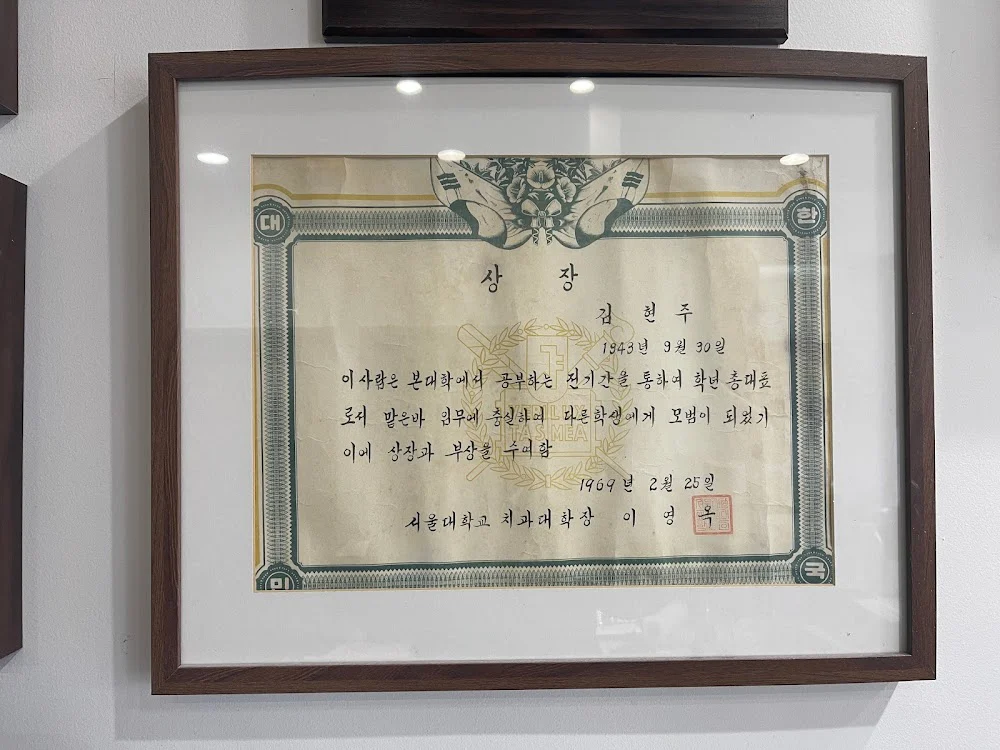 대 한
상 장
김 현 주
1943년 9월 30일
이사람은 본대학에서 공부하는 전기간을 통하여 학년 총대표
로서 맡은바 임무에 충실하여 다른학생에게 모범이 되었기
이에 상장과 부상을 수여함
1969년 2월 25일
서울대학교 치과대학장 이 영 옥
민 국